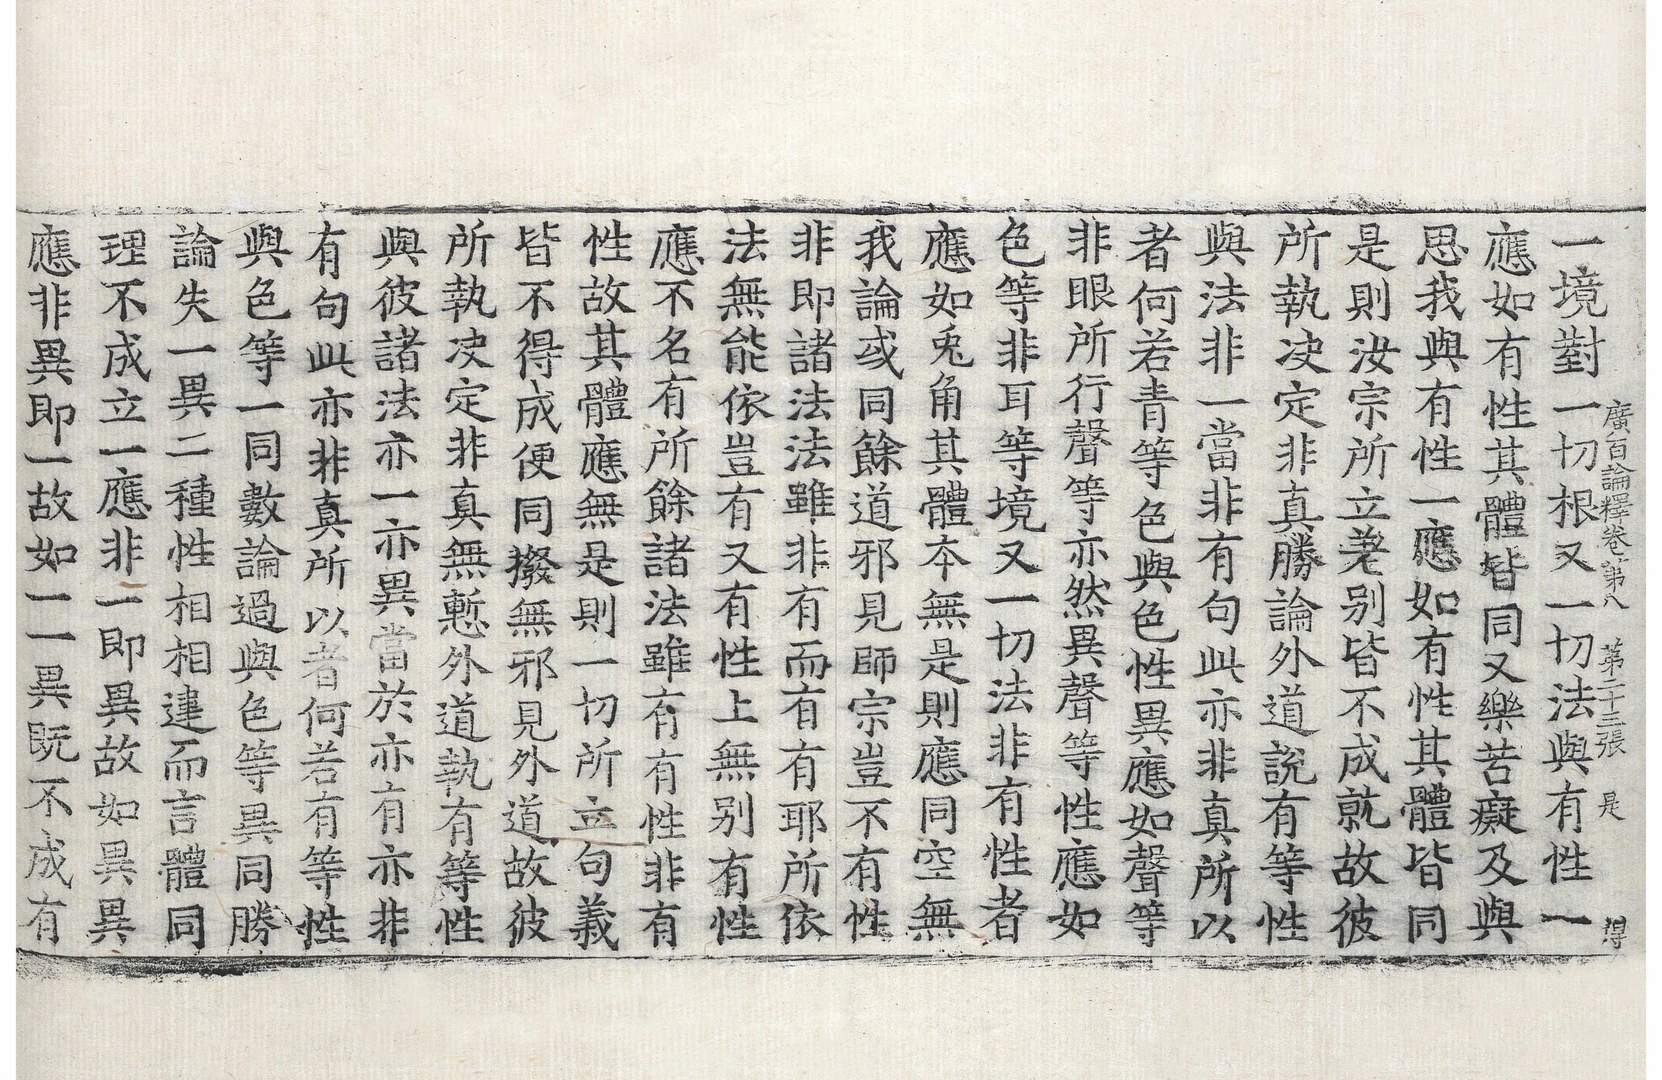 廣百論釋卷第八　第二十三張　是　得
一境對一切根又一切法與有性一
應如有性其體皆同又樂苦癡及與
思我與有性一應如有性其體皆同
是則汝宗所立差别皆不成就故彼
所執决定非真勝論外道說有等性
與法非一當非有句此亦非真所以
者何若青等色與色性異應如聲等
非眼所行聲等亦然異聲等性應如
色等非耳等境又一切法非有性者
應如兎角其體本無是則應同空無
我論或同餘道邪見師宗豈不有性
非即諸法法雖非有而有有耶所依
法無能依豈有又有性上無别有性
應不名有所餘諸法雖有有性非有
性故其體應無是則一切所立句義
皆不得成便同撥無邪見外道故彼
所執决定非真無慙外道執有等性
與彼諸法亦一亦異當於亦有亦非
有句此亦非真所以者何若有等性
與色等一同數論過與色等異同勝
論失一異二種性相相違而言體同
理不成立一應非一即異故如異異
應非異即一故如一一異既不成有